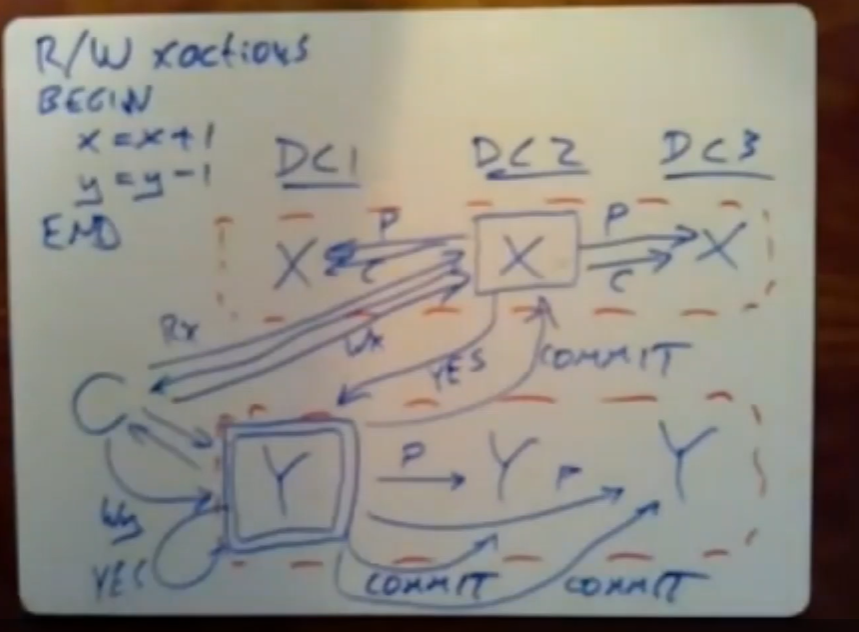 R/W xactions
BEGIN
x = x + 1
y = y - 1
END
DC1 DC2 DC3
P P
X X X
C C
Rx
Wx
YES COMMIT
C
Y P Y P Y
Wy
YES
COMMIT COMMIT